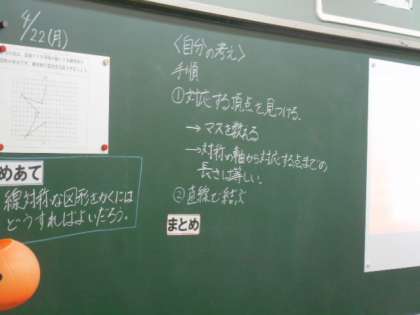 4/22(月)
めあて
線対称な図形をかくには
どうすればよいだろう。
〈自分の考え〉
手順
①対応する頂点を見つける。
→マスを数える
→対称の軸から対応する点までの
長さは等しい。
②直線で結ぶ
まとめ